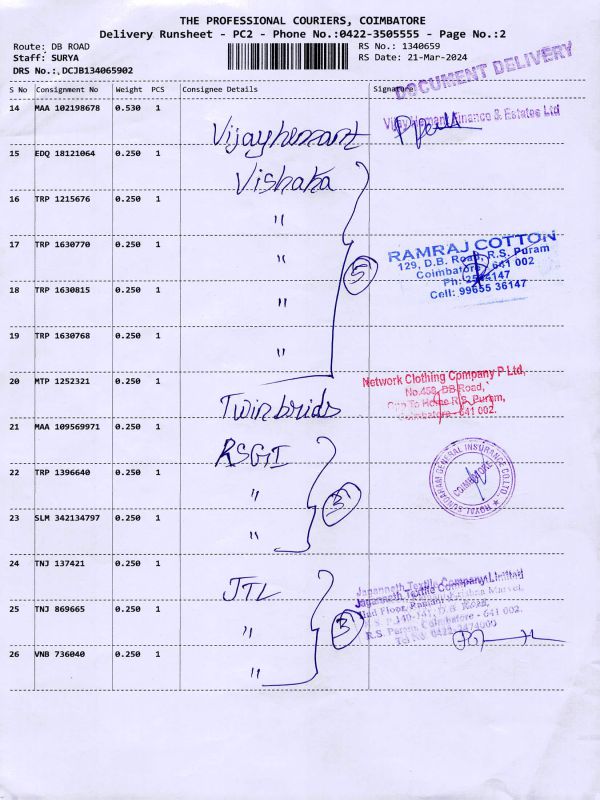 THE PROFESSIONAL COURIERS, COIMBATORE
Delivery Runsheet - PC2 - Phone No.:0422-3505555 - Page No.:2
Route: DB ROAD
Staff: SURYA
DRS No.: DCJB134065902
RS No.: 1340659
RS Date: 21-Mar-2024
DOCUMENT DELIVERY
S No Consignment No Weight PCS Consignee Details Signature
14 MAA 102198678 0.530 1 Vijayhemant
Vijay Hemant Finance & Estates Ltd
15 EDQ 18121064 0.250 1 Vishaka
16 TRP 1215676 0.250 1 "
17 TRP 1630770 0.250 1 "
18 TRP 1630815 0.250 1 "
19 TRP 1630768 0.250 1 "
5
RAMRAJ COTTON
129, D.B. Road, R.S. Puram
Coimbatore - 641 002
Ph: 147
Cell: 99655 36147
20 MTP 1252321 0.250 1 Twinbrids
Network Clothing Company P Ltd,
No.458, DB Road,
Opp To Home R.S. Puram,
Coimbatore - 641 002.
21 MAA 109569971 0.250 1 RSGI
22 TRP 1396640 0.250 1 "
23 SLM 342134797 0.250 1 "
3
ROYAL SUNDARAM GENERAL INSURANCE CO. LTD.
COIMBATORE
24 TNJ 137421 0.250 1 JTL
25 TNJ 869665 0.250 1 "
26 VNB 736040 0.250 1 "
3
Jagannath Textile Company Limited
Jagannath Textile Company Limited
Floor,
D.B. Road,
R.S. Puram, Coimbatore - 641 002.
Tel No: 0422